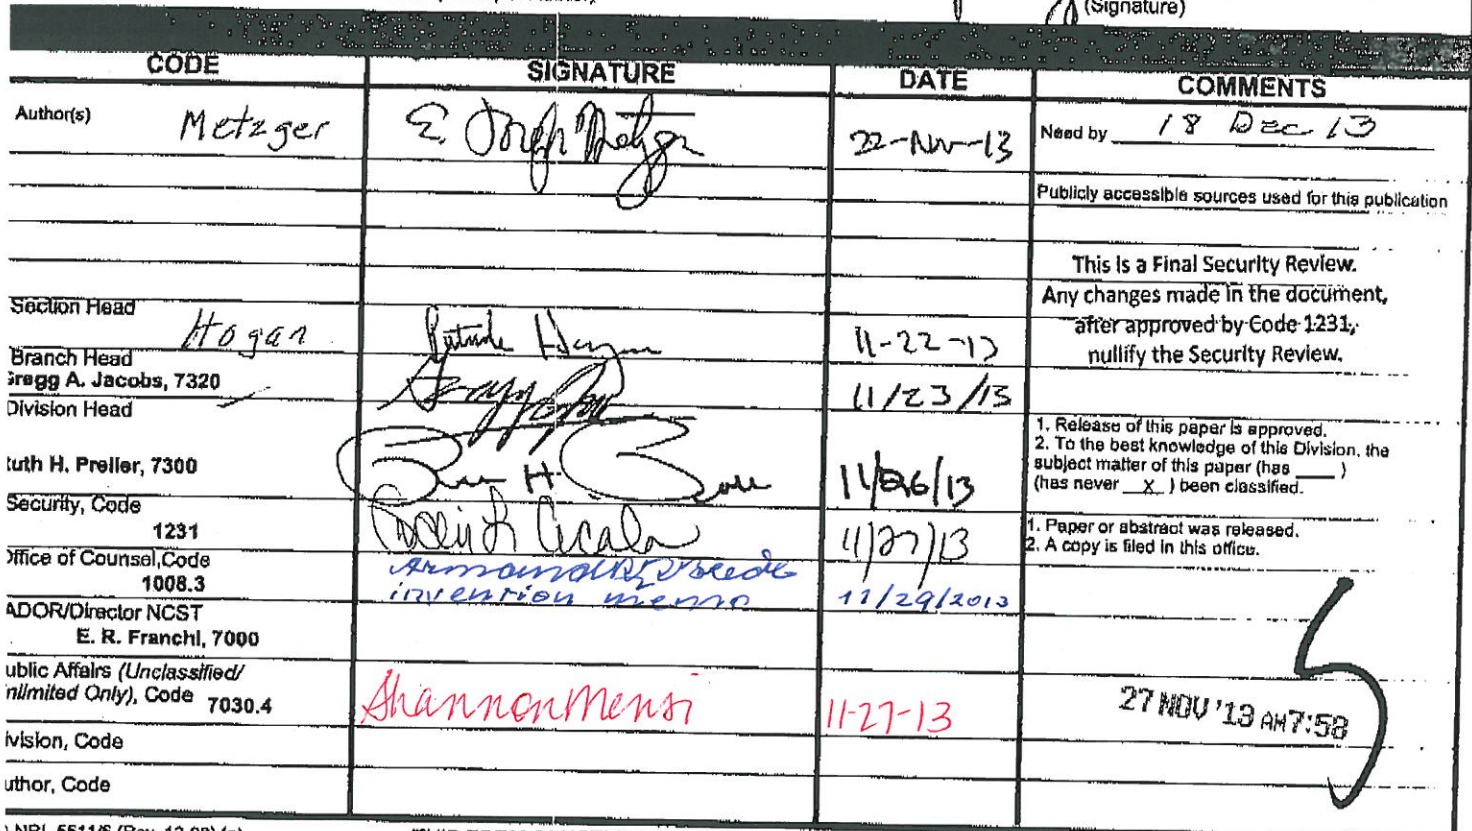 (Signature)
CODE SIGNATURE DATE COMMENTS
Author(s) Metzger E. Joseph Metzger 22-Nov-13 Need by 18 Dec 13
Publicly accessible sources used for this publication
This is a Final Security Review.
Any changes made in the document,
after approved by Code 1231,
nullify the Security Review.
Section Head
Hogan Hogan 11-22-13
Branch Head
Gregg A. Jacobs, 7320 11/23/13
Division Head
1. Release of this paper is approved.
2. To the best knowledge of this Division, the
subject matter of this paper (has ____ )
(has never __X__ ) been classified.
uth H. Preller, 7300 11/26/13
Security, Code
1231 11/27/13
1. Paper or abstract was released.
2. A copy is filed in this office.
Office of Counsel,Code
1008.3 invention memo 11/29/2013
ADOR/Director NCST
E. R. Franchi, 7000
ublic Affairs (Unclassified/
nlimited Only), Code 7030.4 Shannon Mensi 11-27-13
27 NOV '13 AM 7:58
ivision, Code
uthor, Code